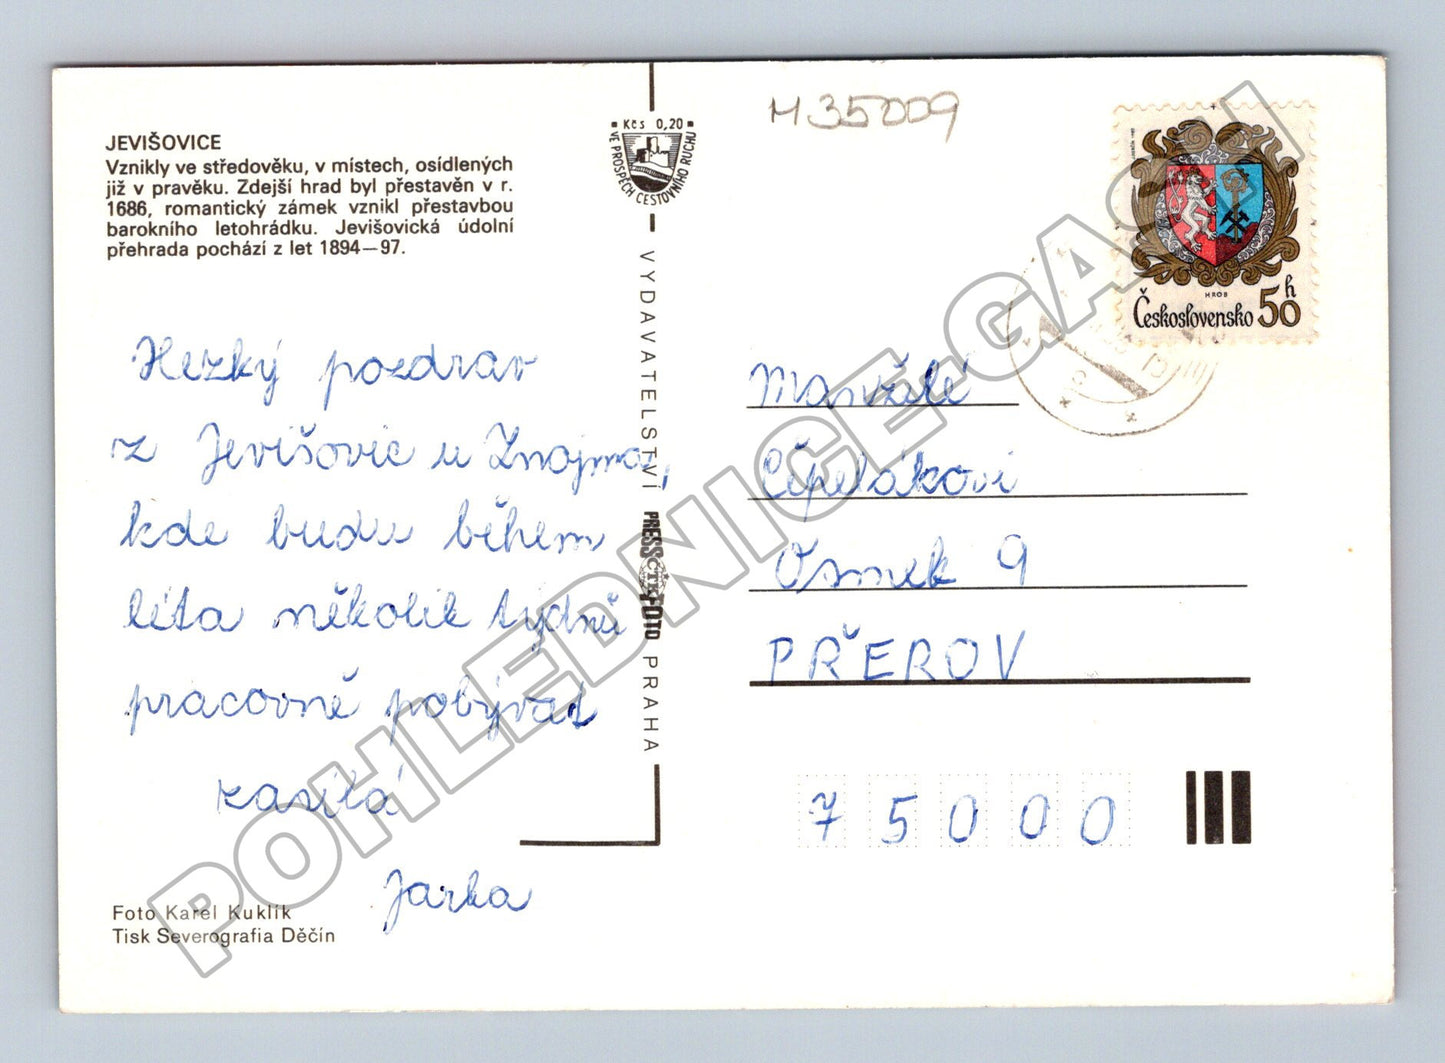 JEVIŠOVICE
Vznikly ve středověku, v místech, osídlených
již v pravěku. Zdejší hrad byl přestavěn v r.
1686, romantický zámek vznikl přestavbou
barokního letohrádku. Jevišovická údolní
přehrada pochází z let 1894—97.
Hezký pozdrav
z Jevišovic u Znojma,
kde budu během
léta několik týdnů
pracovně pobývat
zasílá
Jarka
Foto Karel Kuklík
Tisk Severografia Děčín
Kčs 0,20
VE PROSPĚCH CESTOVNÍHO RUCHU
VYDAVATELSTVÍ PRESSFOTO PRAHA
ČTK
M35009
HROB
Československo 50 h
Manželé
Čepelákovi
Osmek 9
PŘEROV
75000
POHLEDNICE.GASH